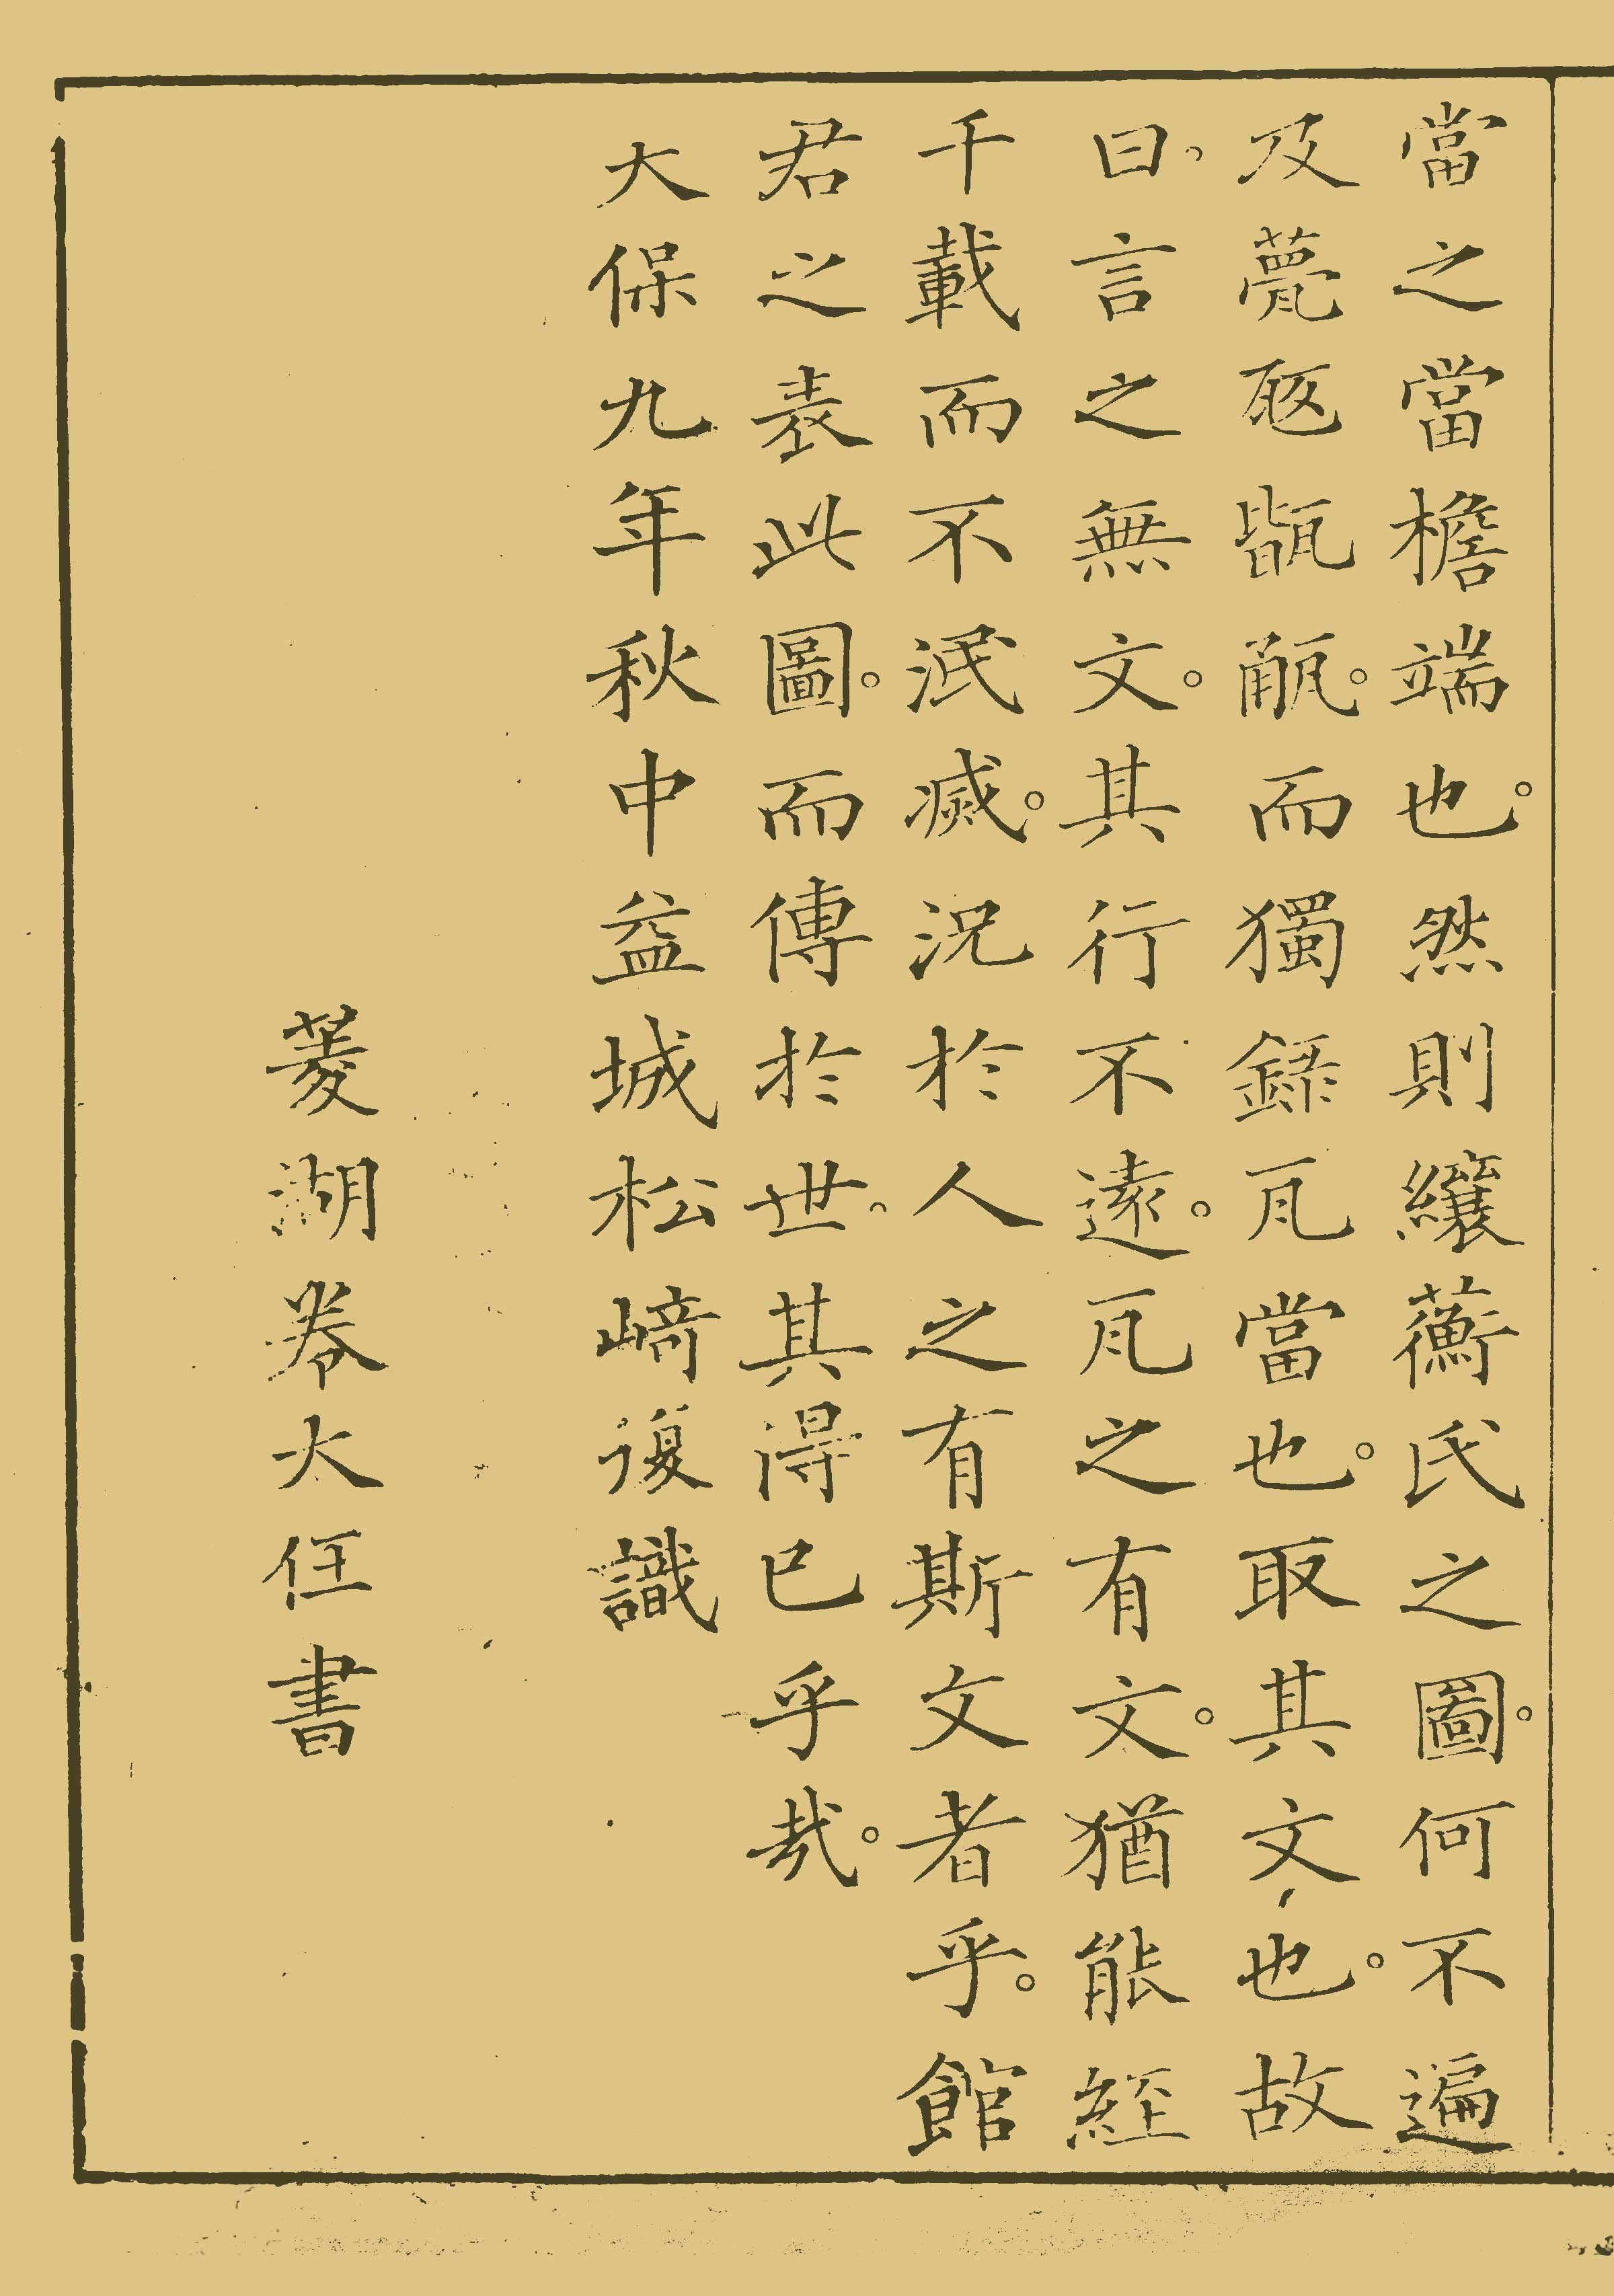 當之當檐端也。然則纕蘅氏之圖。何不遍
及甍瓪㼽㼧。而獨錄瓦當也。取其文也。故
曰。言之無文。其行不遠。瓦之有文。猶能經
千載而不泯滅。況於人之有斯文者乎。館
君之表此圖。而傳於世。其得已乎哉。
大保九年秋中益城松﨑復識
菱湖卷大任書